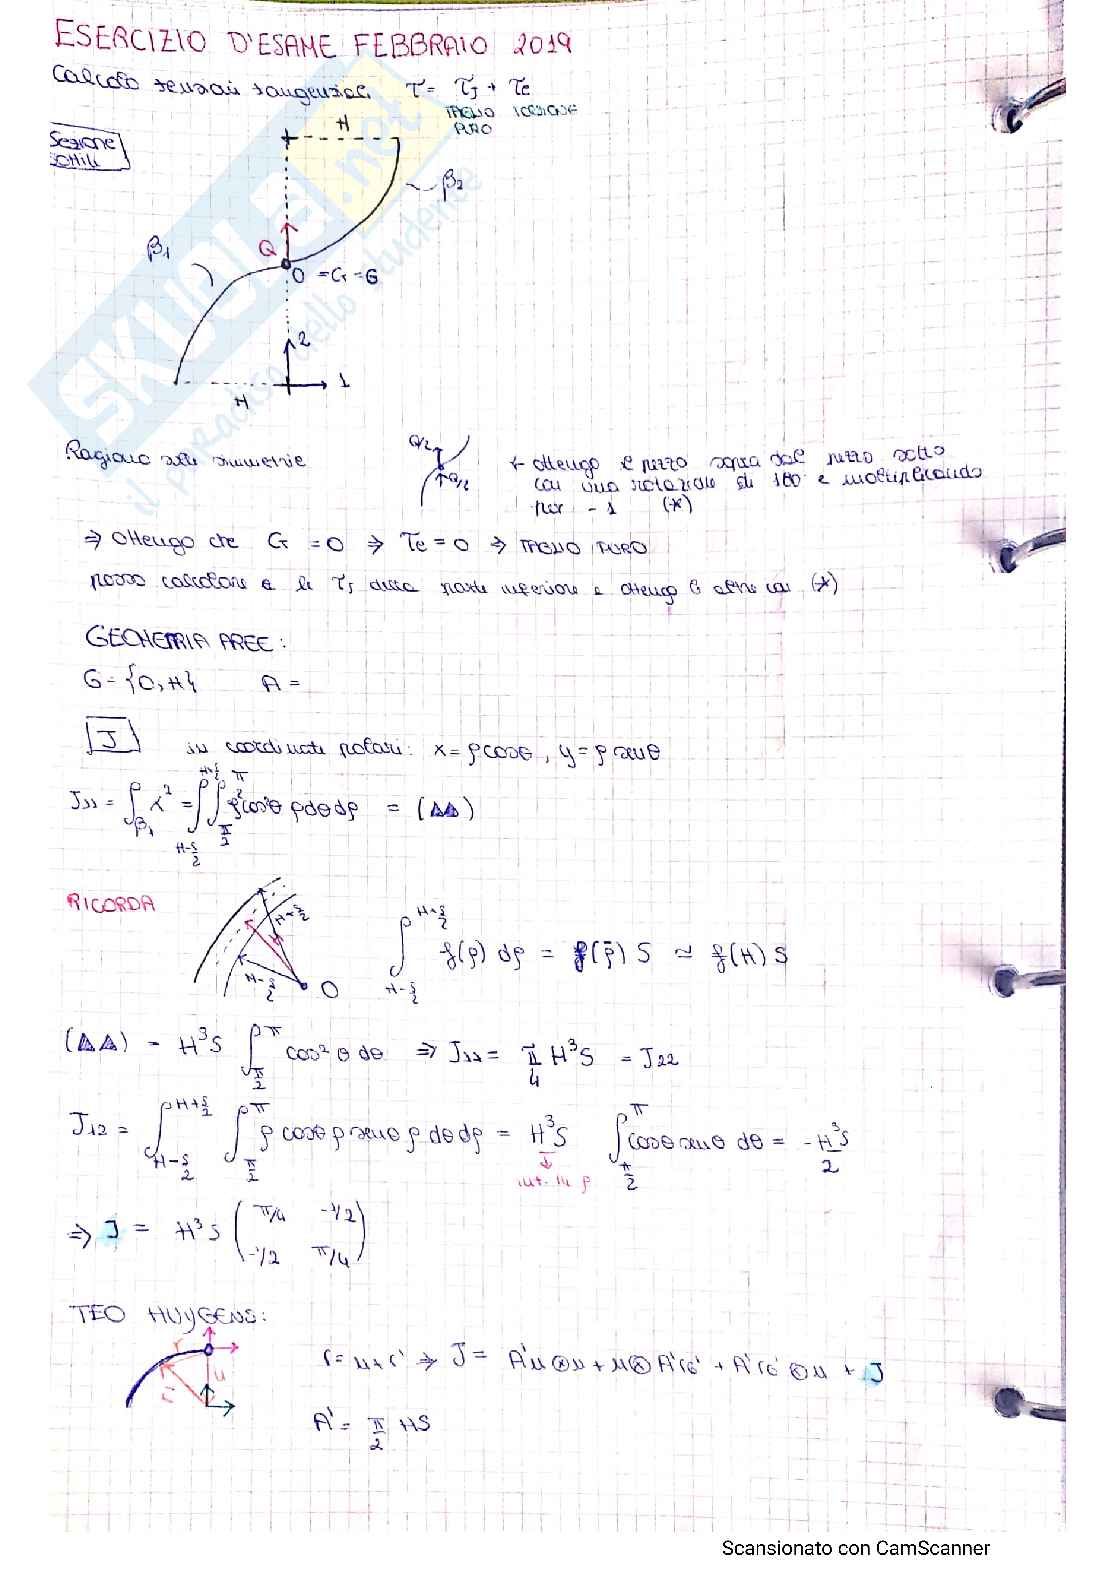 ESERCIZIO D'ESAME FEBBRAIO 2019
Calcolo tensioni tangenziali τ = τ_J + τ_e
TAGLIO PURO TORSIONE
Sezione sottile
H
β₂
β₁
Q
O = C_T = G
2
1
H
Ragiono sulle simmetrie
Q/2
Q/2
← ottengo il pezzo sopra dal pezzo sotto
con una rotazione di 180 e moltiplicando
per -1 (*)
⇒ Ottengo che C_T = 0 ⇒ τ_e = 0 ⇒ TAGLIO PURO
posso calcolare le τ_J della parte inferiore e ottengo le altre con (*)
GEOMETRIA AREE:
G = {0, H} A =
J in coordinate polari: x = ρcosθ, y = ρsenθ
J₁₁ = ∫_{β₁} x² = ∫_{H-S/2}^{H+S/2} ∫_{π/2}^{π} ρ²cos²θ ρdθdρ = (△△)
RICORDA
H+S/2
H-S/2
O
∫_{H-S/2}^{H+S/2} f(ρ) dρ = f(ρ̄) S ≈ f(H) S
(△△) = H³S ∫_{π/2}^{π} cos²θ dθ ⇒ J₁₁ = π/4 H³S = J₂₂
J₁₂ = ∫_{H-S/2}^{H+S/2} ∫_{π/2}^{π} ρ cosθ ρ senθ ρ dθdρ = H³S ∫_{π/2}^{π} cosθ senθ dθ = -H³S/2
int. in ρ
⇒ J = H³S (π/4 -1/2
-1/2 π/4)
TEO HUYGENS:
r
r'
u
r = u + r' ⇒ J = A'u⊗u + u⊗A'r_G' + A'r_G'⊗u + J
A' = π/2 HS
SKUOLA.net
il paradiso dello studente
Scansionato con CamScanner